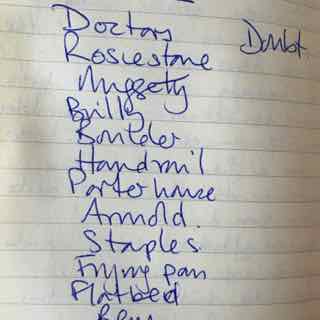 Doctors
Doubt
Rosiestone
Nuggety
Brilly
Boulder
Handrail
Porterhouse
Arnold.
Staples
Frying pan
Flatbed